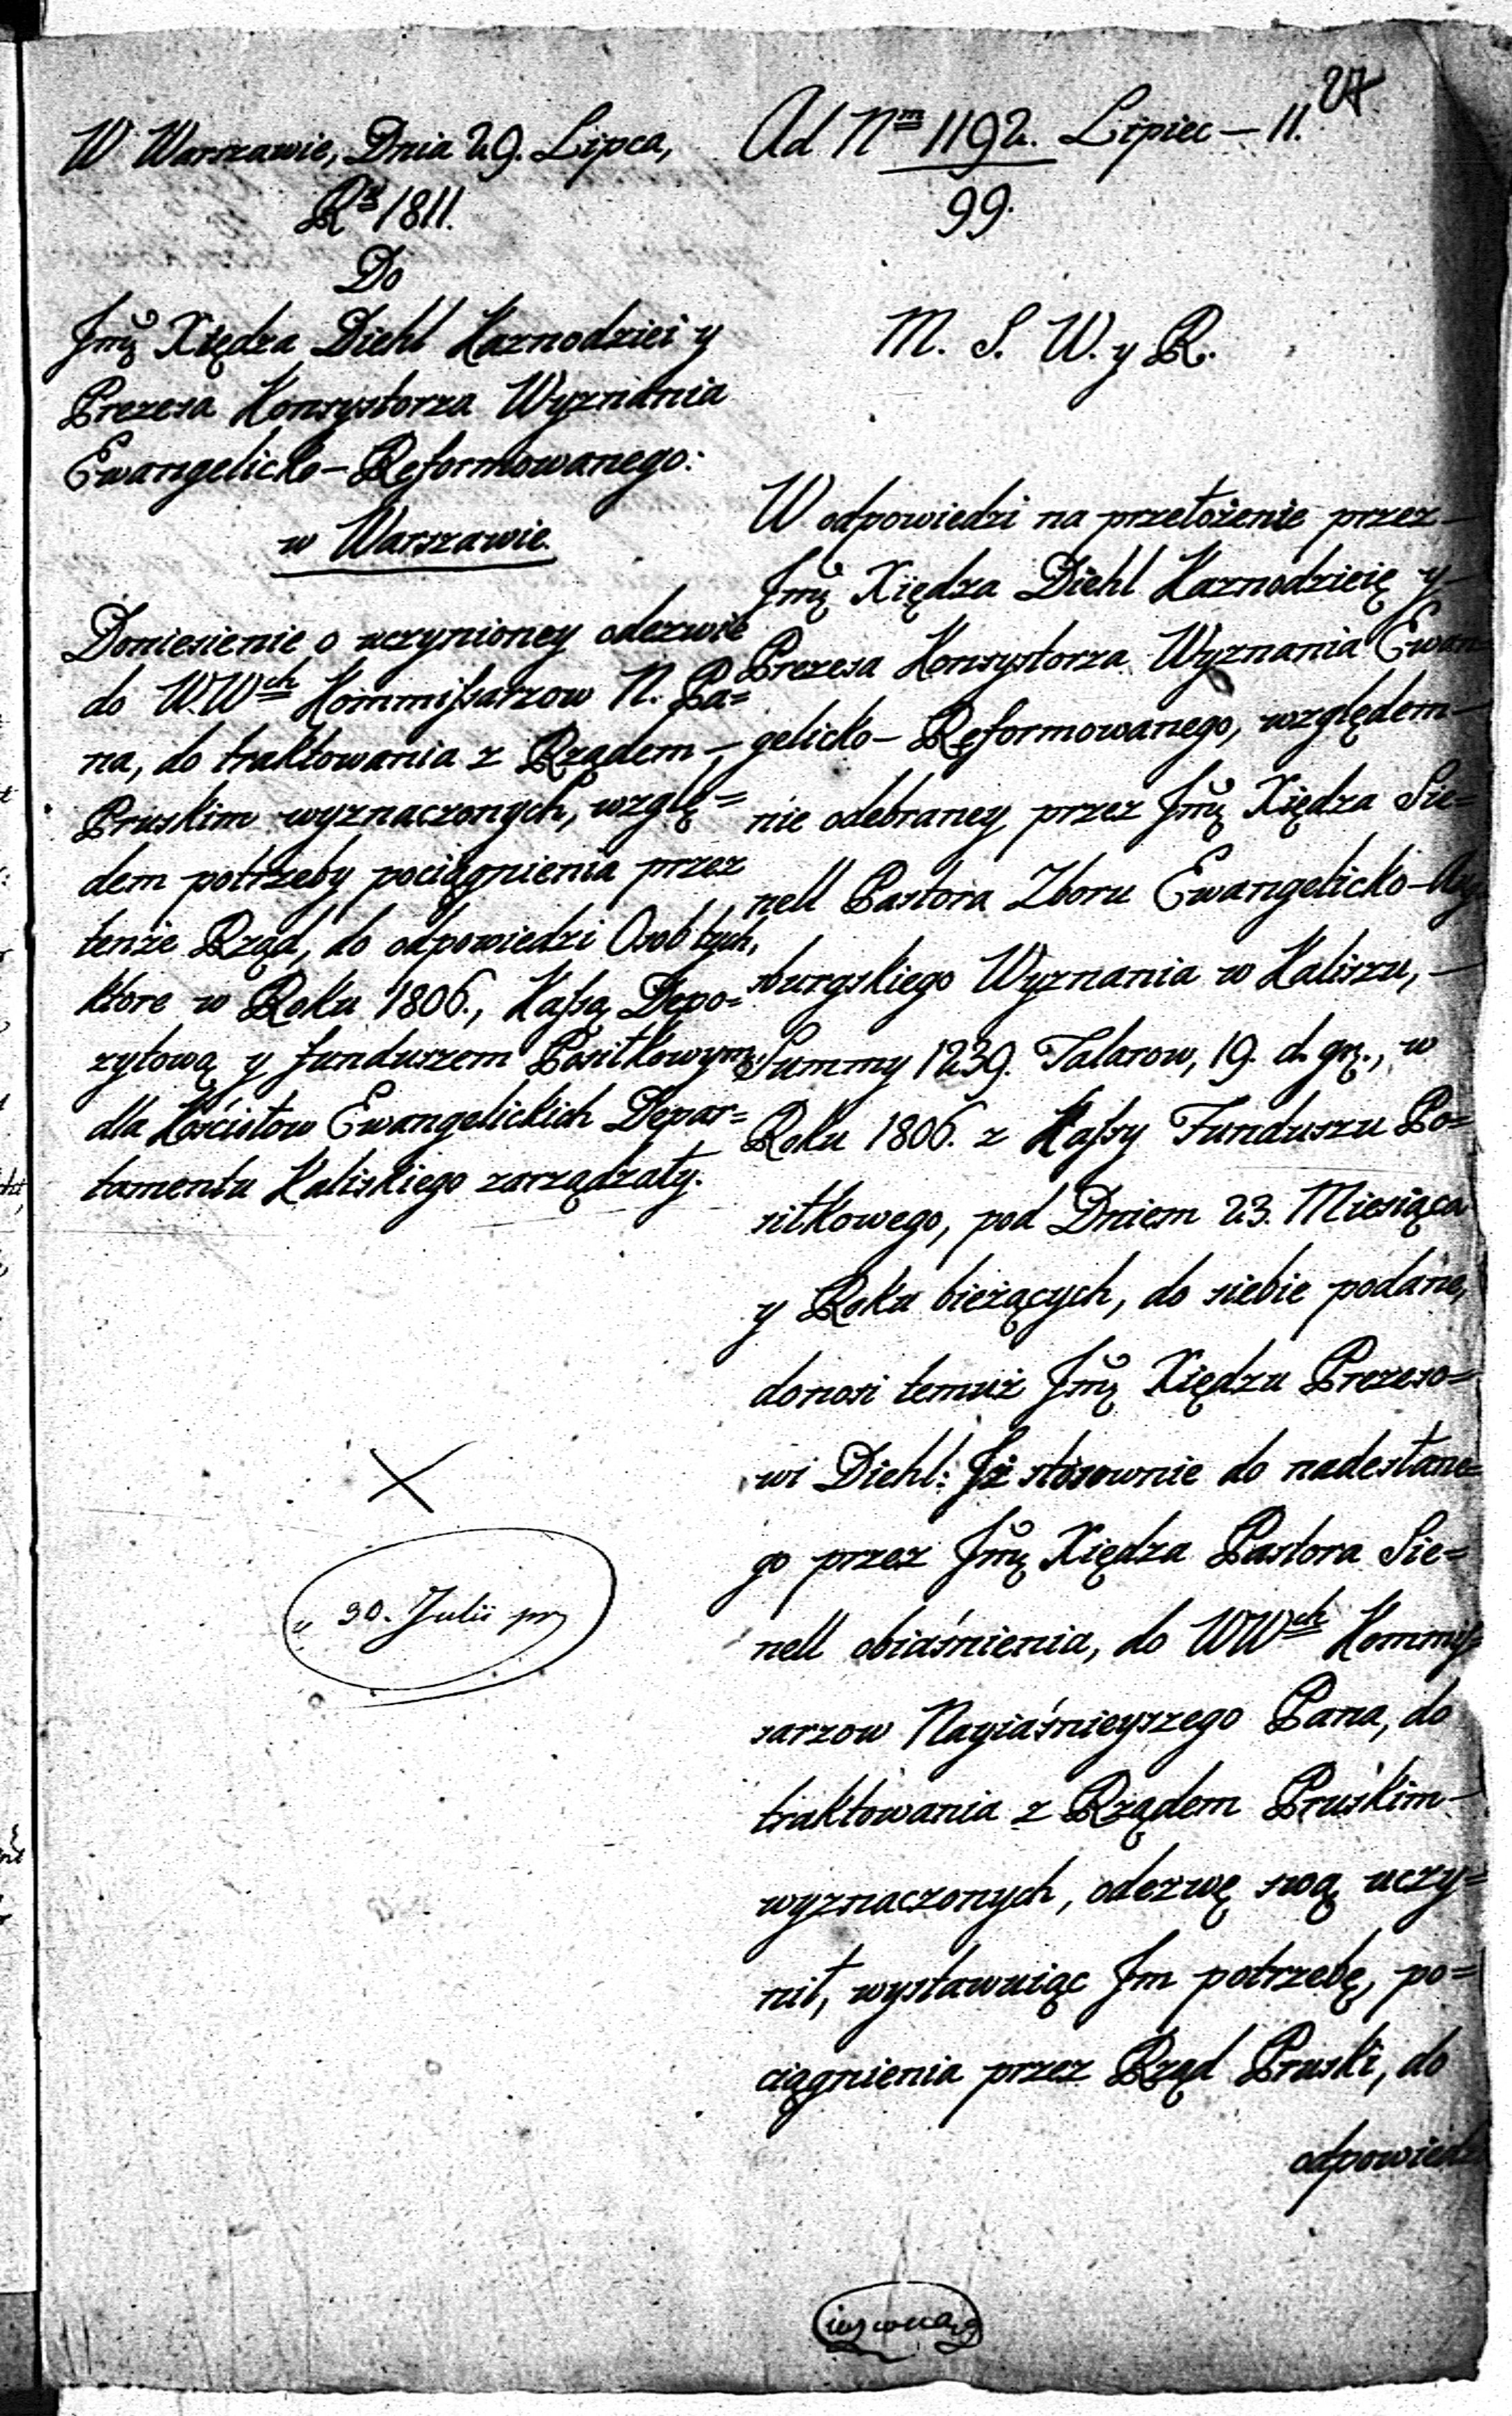 27
W Warszawie, Dnia 29. Lipca,
Rᵘ 1811.
Do
Jmć Xiędza Diehl Kaznodziei y
Prezesa Konsystorza Wyznania
Ewangelicko-Reformowanego:
w Warszawie.
Doniesienie o uczynioney odezwie
do W.Wᶜʰ Kommissarzow N. Pa=
na, do traktowania z Rządem –
Pruskim wyznaczonych, wzglę=
dem potrzeby pociągnienia przez
tenże Rząd, do odpowiedzi Osob tych,
ktore w Roku 1806., Kassą Depo=
zytową y funduszem Posiłkowym
dla Kościołow Ewangelickich Depar=
tamentu Kaliskiego zarządzały.
30. Julii
Ad Nᵐ 1192. Lipiec – 11.
99.
M. S. W. y R.
W odpowiedzi na przełożenie przez –
Jmć Xiędza Diehl Kaznodzieię y –
Prezesa Konsystorza Wyznania Ewan
gelicko – Reformowanego, względem –
nie odebraney przez Jmć Xiędza Sie=
nell Pastora Zboru Ewangelicko – Aug
sburgskiego Wyznania w Kaliszu, –
Summy 1239. Talarow, 19. d. gr., w
Roku 1806. z Kassy Funduszu Po=
siłkowego, pod Dniem 23. Miesiąca
y Roku bieżących, do siebie podane,
donosi temuż Jmć Xiędzu Prezeso=
wi Diehl: Iż stosownie do nadesłane
go przez Jmć Xiędza Pastora Sie=
nell obiaśnienia, do WWᶜʰ Kommis
sarzow Nayiaśnieyszego Pana, do
traktowania z Rządem Pruskim –
wyznaczonych, odezwę swą uczy=
nił, wystawuiąc Im potrzebę, po=
ciągnienia przez Rząd Pruski, do
odpowiedzi